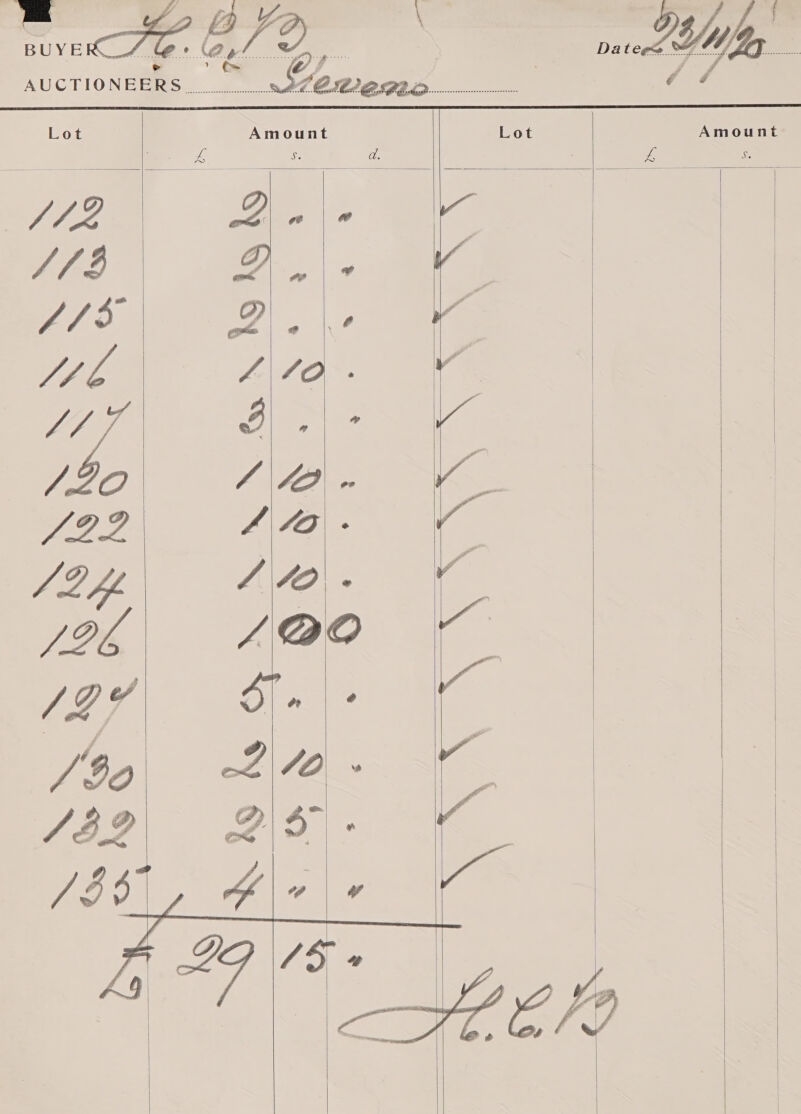 BUYER H.C.B.
Date 23/11/20
AUCTIONEERS Stevens
Lot Amount Lot Amount
£ s. d. £ s.
112 2 " " ✓
113 2 " " ✓
115 2 . " ✓
116 1 10 . ✓
117 3 . " ✓
120 1 10 " ✓
122 1 10 . ✓
124 1 10 . ✓
126 1 0 0 ✓
127 5 " . ✓
130 2 10 " ✓
132 2 5 . ✓
135 4 " " ✓
£ 29 15 "
H.C.B